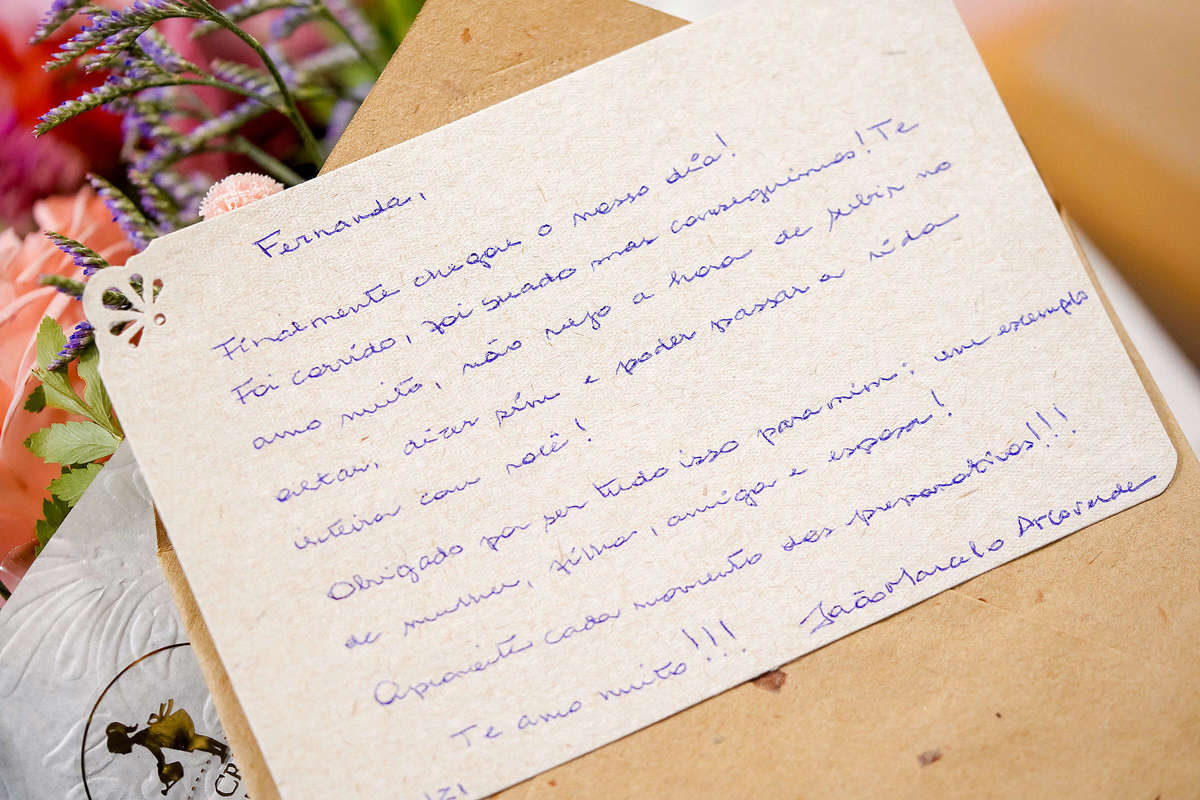 Fernanda,
Finalmente chegou o nosso dia!
Foi corrido, foi suado mas conseguimos! Te
amo muito, não vejo a hora de subir no
altar, dizer sim e poder passar a vida
inteira com você!
Obrigado por ser tudo isso para mim: um exemplo
de mulher, filha, amiga e esposa!
Aproveite cada momento dos preparativos!!!
Te amo muito!!!
João Marcelo Arcoverde